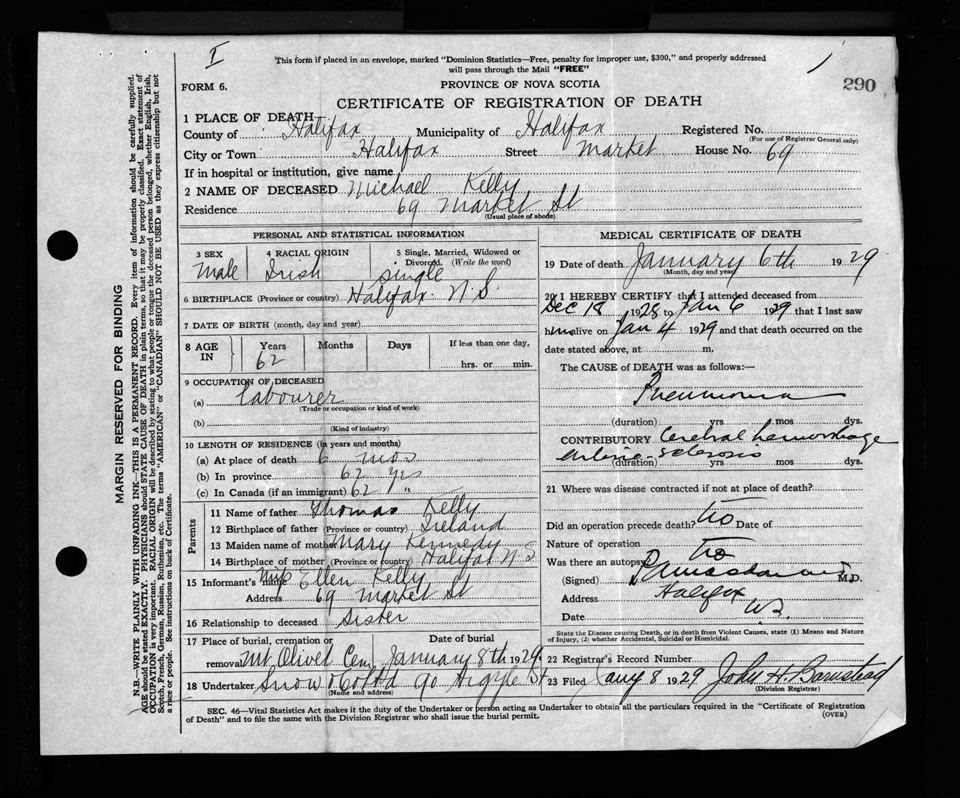 I
This form if placed in an envelope, marked "Dominion Statistics—Free, penalty for improper use, $300," and properly addressed
will pass through the Mail "FREE"
290
FORM 6.
PROVINCE OF NOVA SCOTIA
CERTIFICATE OF REGISTRATION OF DEATH
1 PLACE OF DEATH
County of Halifax Municipality of Halifax Registered No.
(For use of Registrar General only)
City or Town Halifax Street Market House No. 69
If in hospital or institution, give name
2 NAME OF DECEASED Michael Kelly
Residence 69 Market St
(Usual place of abode)
PERSONAL AND STATISTICAL INFORMATION
3 SEX Male
4 RACIAL ORIGIN Irish
5 Single, Married, Widowed or Divorced. (Write the word) Single
6 BIRTHPLACE (Province or country) Halifax N.S.
7 DATE OF BIRTH (month, day and year)
8 AGE IN Years Months Days If less than one day,
62 hrs. or min.
9 OCCUPATION OF DECEASED
(a) Labourer
(Trade or occupation or kind of work)
(b)
(Kind of industry)
10 LENGTH OF RESIDENCE (in years and months)
(a) At place of death 6 mos
(b) In province 62 yrs
(c) In Canada (if an immigrant) 62 "
Parents
11 Name of father Thomas Kelly
12 Birthplace of father (Province or country) Ireland
13 Maiden name of mother Mary Kennedy
14 Birthplace of mother (Province or country) Halifax N.S
15 Informant's Name Ellen Kelly
Address 69 Market St
16 Relationship to deceased Sister
17 Place of burial, cremation or removal Date of burial
Mt Olivet Cem January 8th 1929
18 Undertaker Snow & Co Ltd 90 Argyle St
(Name and address)
MEDICAL CERTIFICATE OF DEATH
19 Date of death January 6th 1929
(Month, day and year)
20 I HEREBY CERTIFY that I attended deceased from
Dec 18 1928 to Jan 6 1929 that I last saw
him alive on Jan 4 1929 and that death occurred on the
date stated above, at m.
The CAUSE of DEATH was as follows:—
Pneumonia
(duration) yrs mos dys.
CONTRIBUTORY Cerebral hemorrhage
Arterio-sclerosis
(duration) yrs mos dys.
21 Where was disease contracted if not at place of death?
Did an operation precede death? No Date of
Nature of operation
Was there an autopsy No
(Signed) M.D.
Address Halifax
Date
State the Disease causing Death, or in death from Violent Causes, state (1) Means and Nature
of Injury, (2) whether Accidental, Suicidal or Homicidal.
22 Registrar's Record Number
23 Filed Jany 8 1929 John H. Barnstead
(Division Registrar)
SEC. 46—Vital Statistics Act makes it the duty of the Undertaker or person acting as Undertaker to obtain all the particulars required in the "Certificate of Registration
of Death" and to file the same with the Division Registrar who shall issue the burial permit.
(OVER)
MARGIN RESERVED FOR BINDING
N.B.—WRITE PLAINLY WITH UNFADING INK—THIS IS A PERMANENT RECORD. Every item of information should be carefully supplied.
AGE should be stated EXACTLY. PHYSICIANS should STATE CAUSE OF DEATH in plain terms, so that it may be properly classified. Exact statement of
OCCUPATION is very important. RACIAL ORIGIN will be described by stating to what people or tongue the deceased person belonged, whether English, Irish,
Scotch, French, German, Russian, Ruthenian, etc. The terms "AMERICAN" or "CANADIAN" SHOULD NOT BE USED as they express citizenship but not
a race or people. See instructions on back of Certificate.